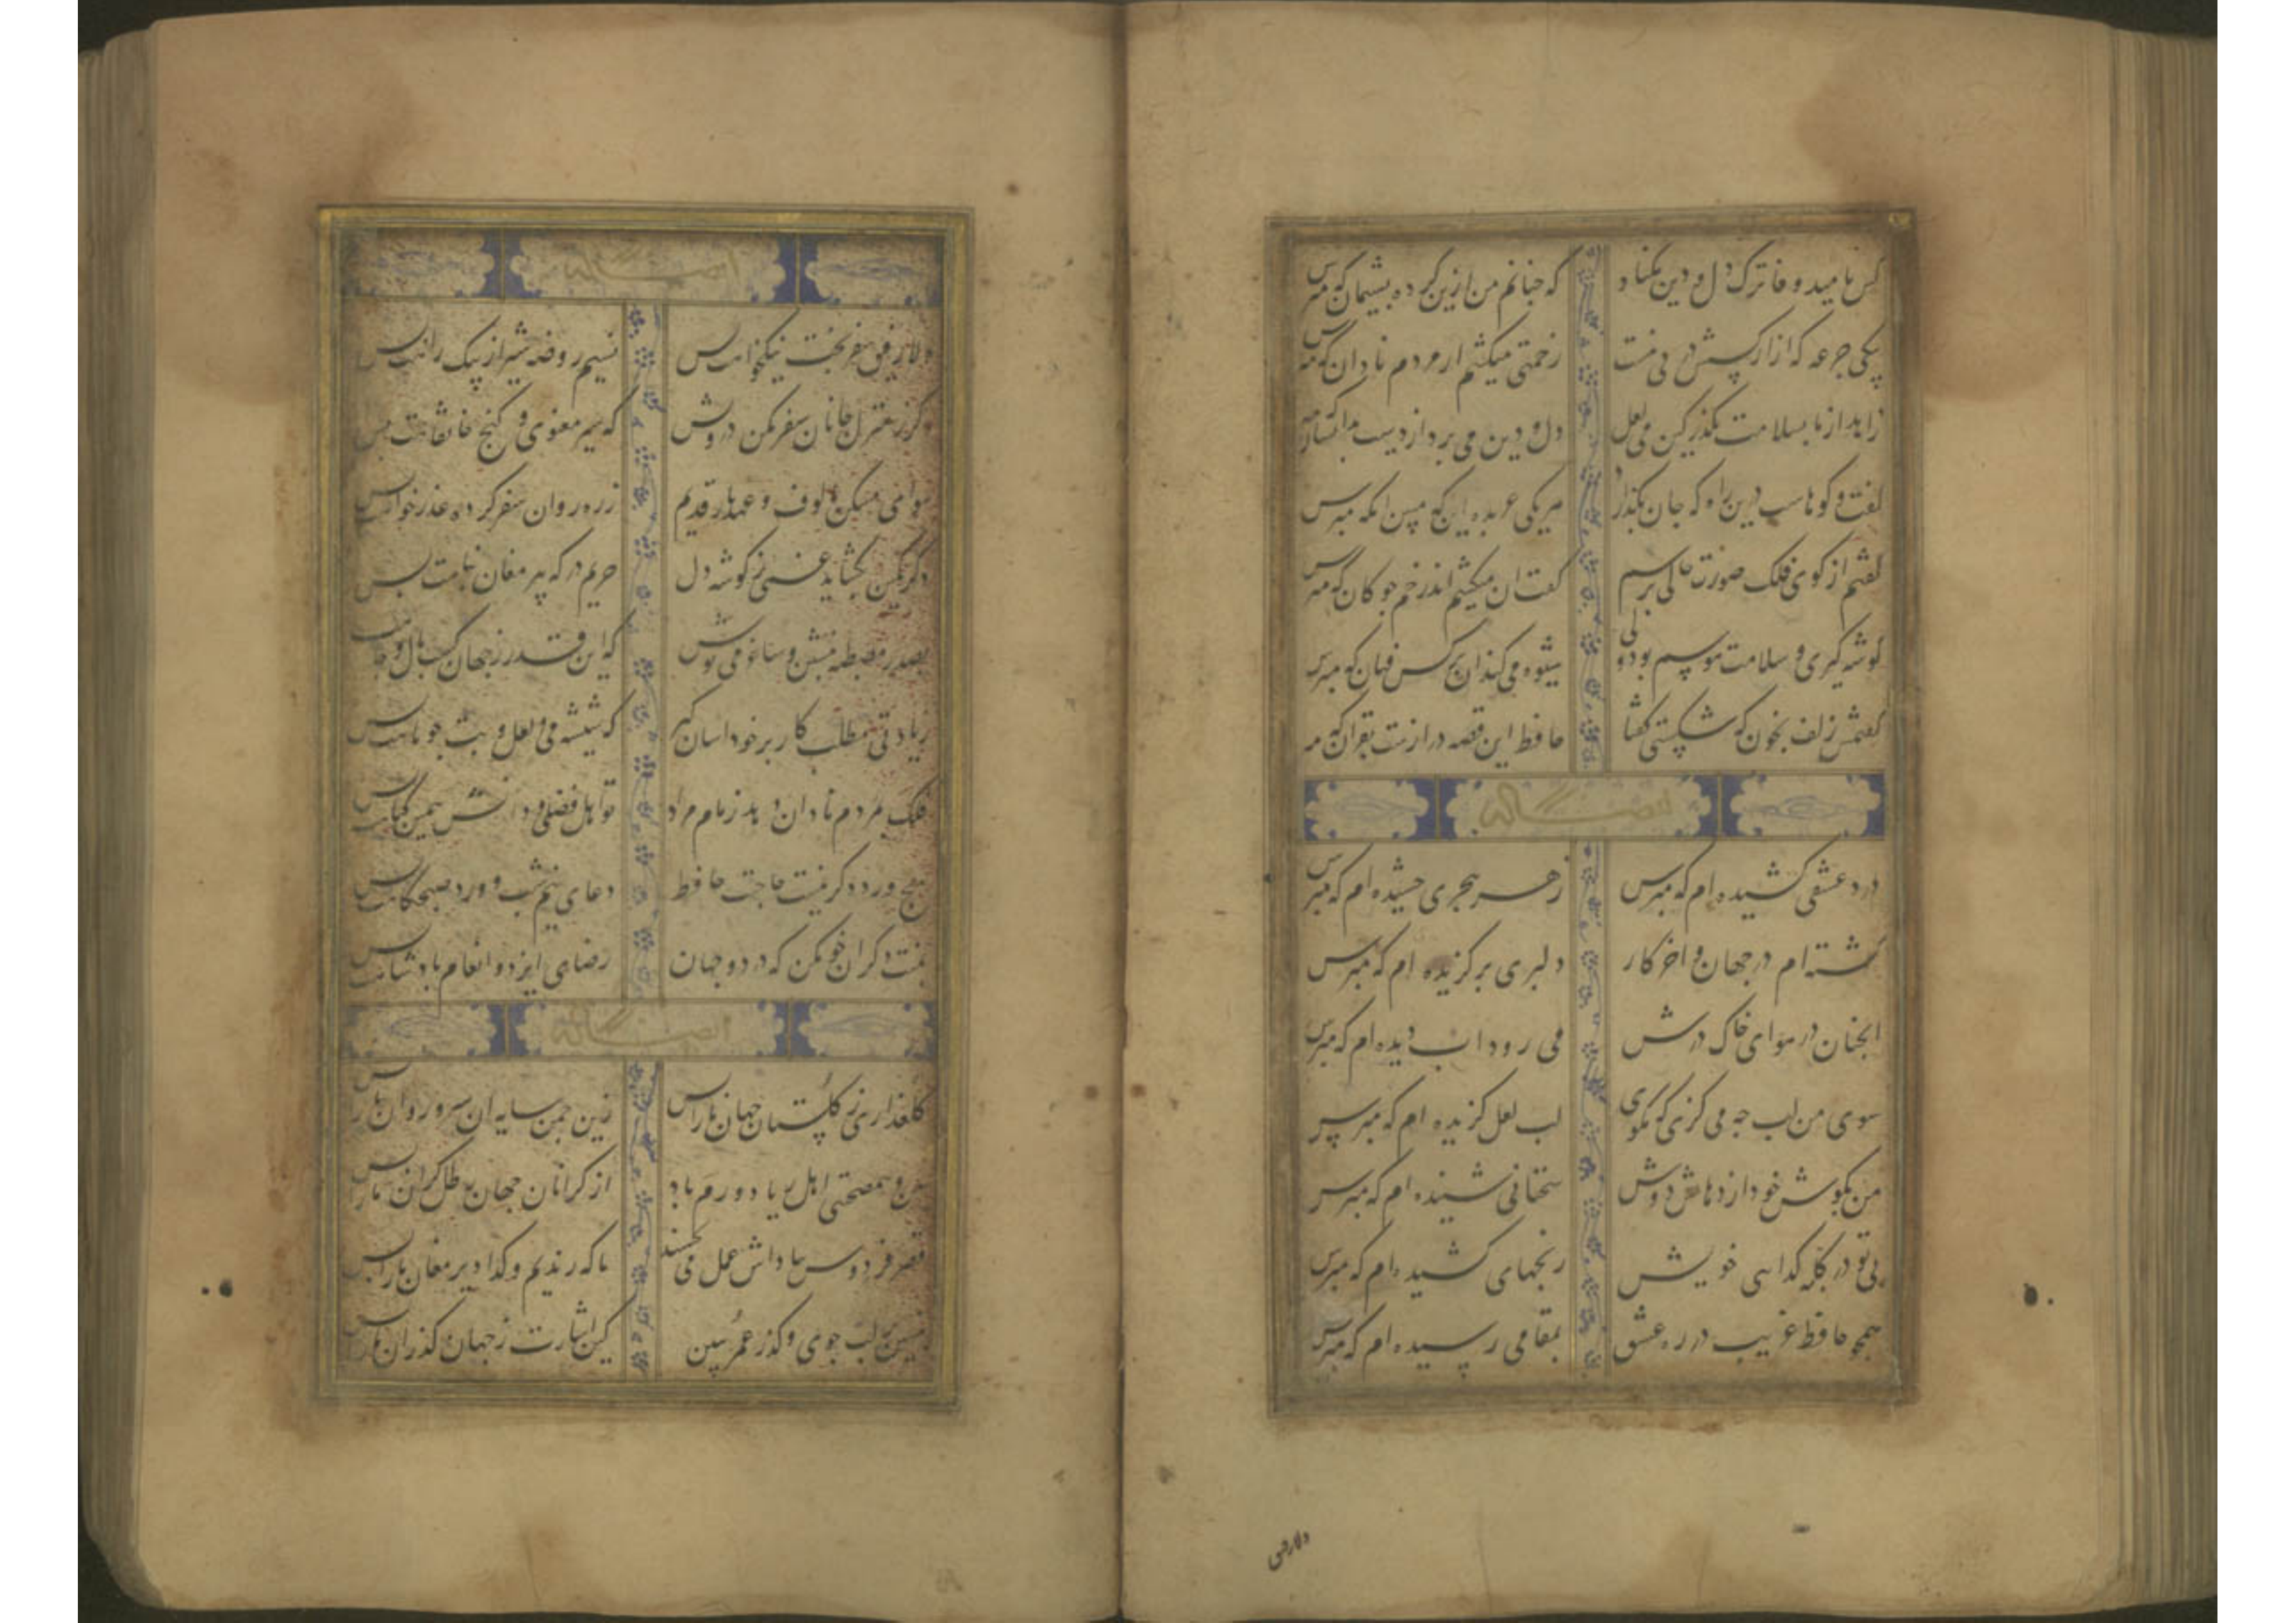 کس بامید وفا ترک دل و دین مکناد که جنانم من ازین کرده بشیمان که مپرس
بیکی جرعه که ازار کسش در بی نیست زحمتی میکشم از مردم نادان که مپرس
زاهد از ما بسلامت بکذر کین می لعل دل و دین می برد از دست بدانسان که مپرس
گفت و کوهاست درین راه که جان بکذارد هر یکی عربده این که مبین انکه مپرس
کفتم از کوی فلک صورت حالی برسم گفت ان میکشم اندر خم جوکان که مپرس
کوشه کیری و سلامت هوسم بود ولی شیوه می کند ان نرکس فتان که مپرس
کفتمش زلف بخون که شکستی کفتا حافظ این قصه درازست بقران که مپرس
درد عشقی کشیده ام که مپرس زهر هجری جشیده ام که مپرس
کشته ام در جهان و اخر کار دلبری برکزیده ام که مپرس
انجنان در هوای خاک درش می رود اب دیده ام که مپرس
سوی من لب جه می کزی که مکوی لب لعلی کزیده ام که مپرس
من بکوش خود از دهانش دوش سخنانی شنیده ام که مپرس
بی تو در کلبه کدایی خویش رنجهایی کشیده ام که مپرس
همجو حافظ غریب در ره عشق بمقامی رسیده ام که مپرس
دلا رفیق
دلا رفیق سفر بخت نیکخواهت بس نسیم روضه شیراز پیک راهت بس
دکر ز منزل جانان سفر مکن درویش که سیر معنوی و کنج خانقاهت بس
هوای مسکن مالوف و عهد یار قدیم ز ره روان سفر کرده عذرخواهت بس
دکر کمین بکشاید غمی ز کوشه دل حریم درکه پیر مغان بناهت بس
بصدر مصطبه بنشین و ساغر می نوش که این قدر ز جهان کسب مال و جاهت بس
زیادتی مطلب کار بر خود اسان کیر که شیشه می لعل و بت جو ماهت بس
فلک بمردم نادان دهد زمام مراد تو اهل فضلی و دانش همین کناهت بس
بهیج ورد دکر نیست حاجت حافظ دعای نیم شب و ورد صبحکاهت بس
بمنت دکران خو مکن که در دو جهان رضای ایزد و انعام بادشاهت بس
کلعذاری ز کلستان جهان ما را بس زین جمن سایه ان سرو روان ما را بس
من و همصحبتی اهل ریا دورم باد از کرانان جهان رطل کران ما را بس
قصر فردوس بباداش عمل می بخشند ما که رندیم و کدا دیر مغان ما را بس
بنشین بر لب جوی و کذر عمر ببین کین اشارت ز جهان کذران ما را بس